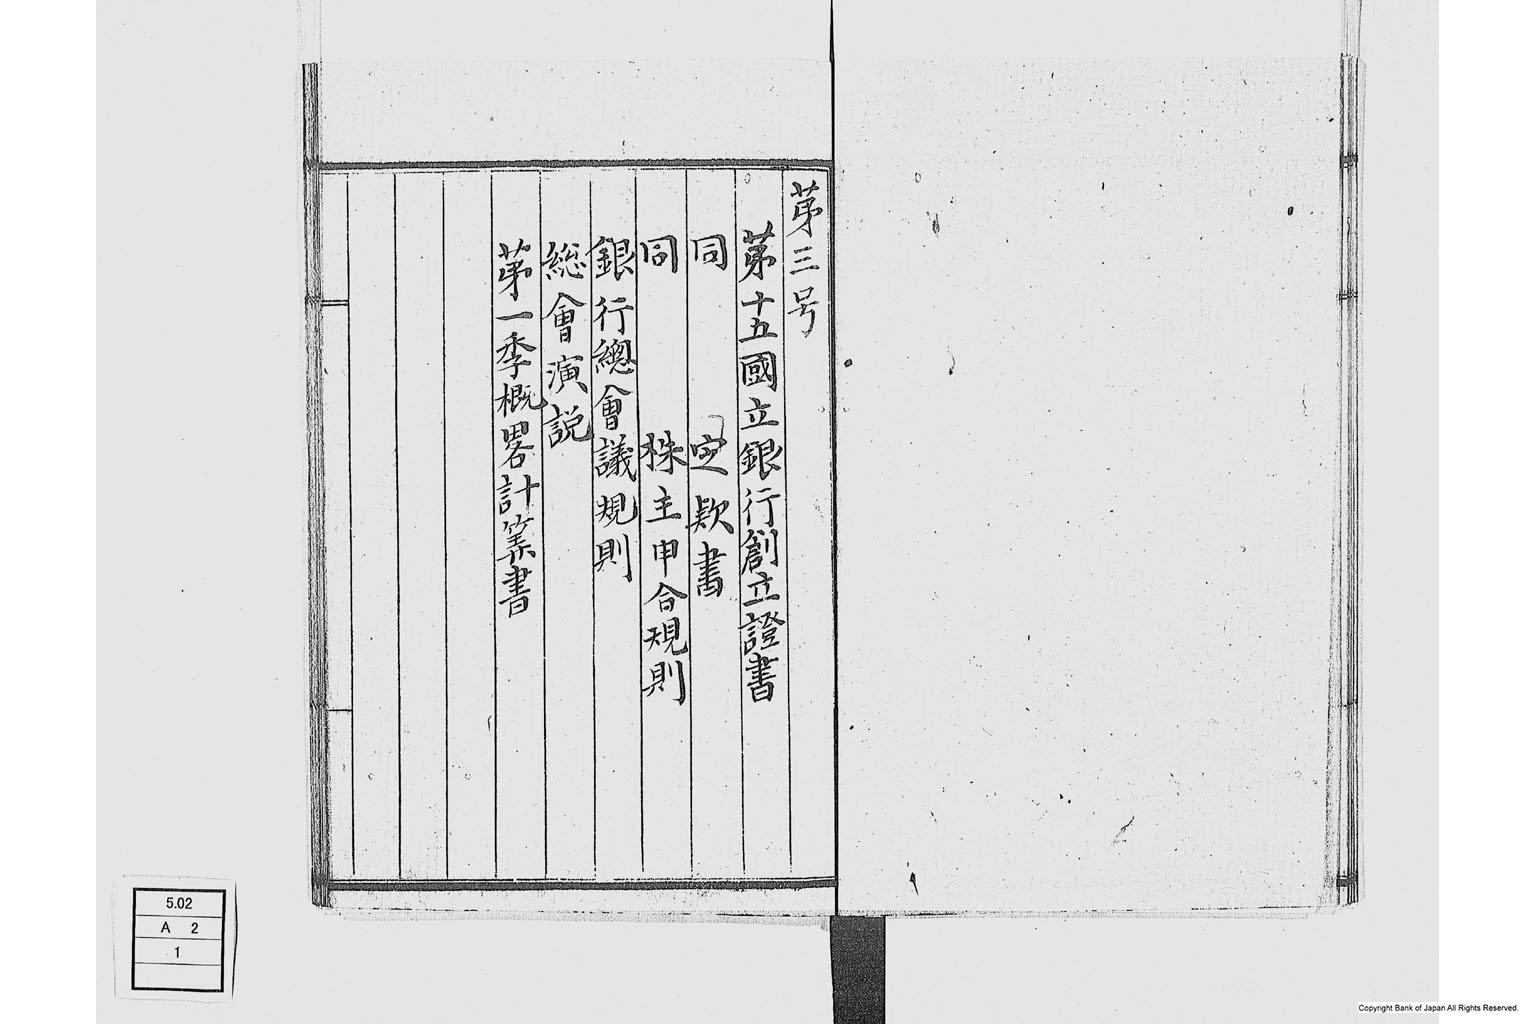 第三号
第十五國立銀行創立證書
同 定款書
同 株主申合規則
銀行總會議規則
総會演説
第一季概畧計算書
5.02
A 2
1
Copyright Bank of Japan All Rights Reserved.